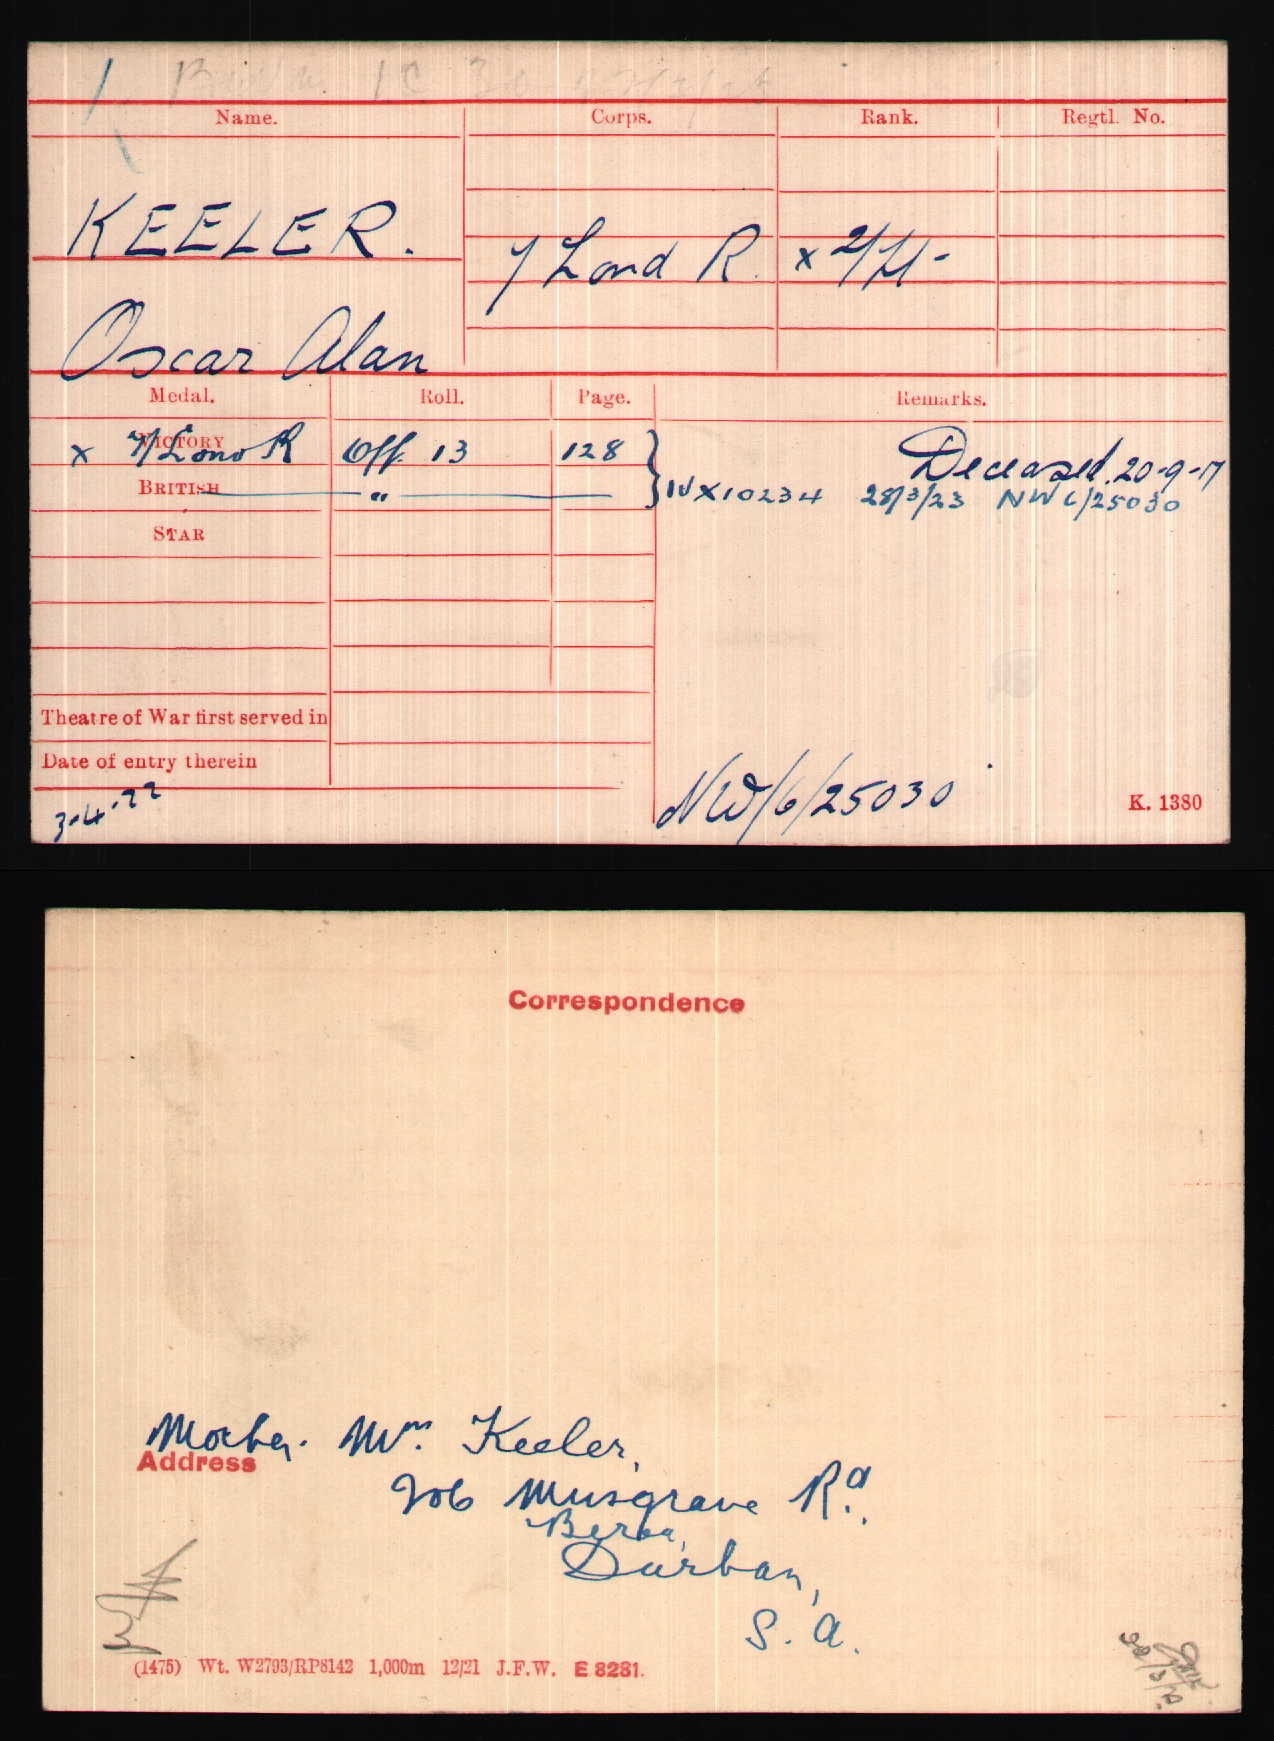 Name. Corps. Rank. Regtl. No.
KEELER.
7 Lond R. x 2/Lt-
Oscar Alan
Medal. Roll. Page. Remarks.
VICTORY
x 7/Lond R Off. 13 128
Deceased. 20-9-17
BRITISH — " — IV X 10234 28/3/23 NW 6/25030
STAR
Theatre of War first served in
Date of entry therein
3-4-22
NW/6/25030
K. 1380
Correspondence
Mother. Mrs. Keeler,
Address
706 Musgrave Rd.
Berea,
Durban,
S. A.
(1475) Wt. W2793/RP8142 1,000m 12/21 J.F.W. E 8281.